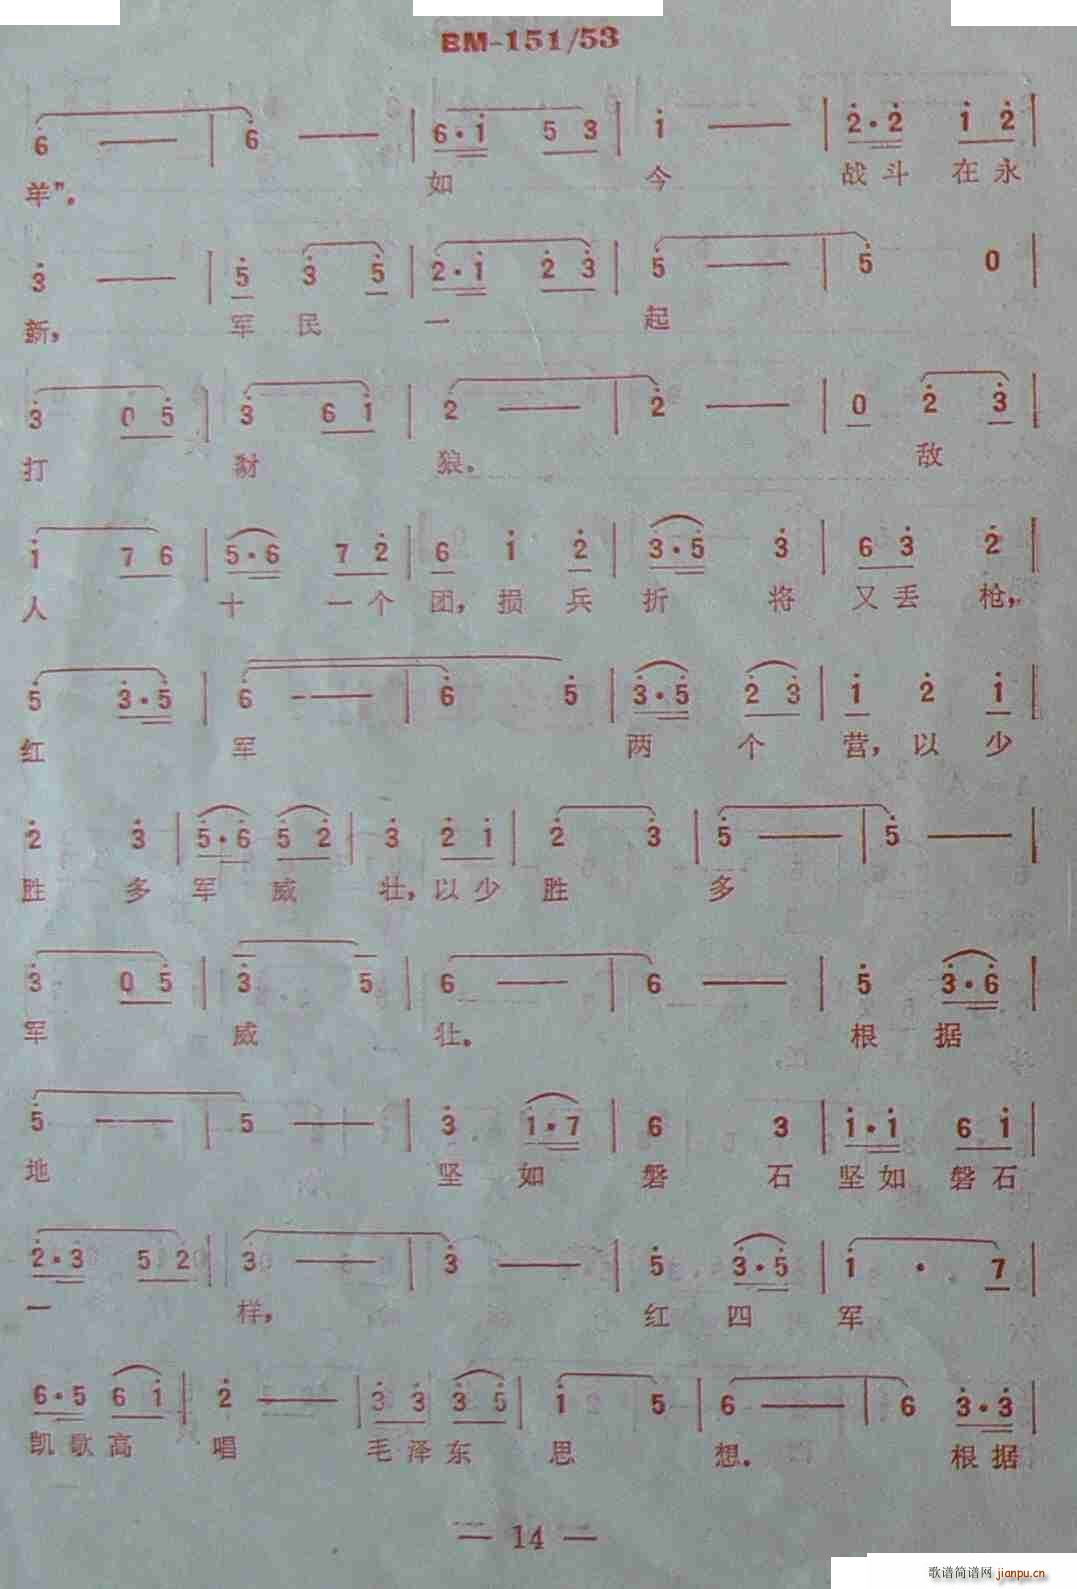 BM-151/53
6 — | 6 — | 6·i 5 3 | i — | 2·2 i 2 |
羊”。 如 今 战斗 在永
3 — | 5 3 5 | 2·i 2 3 | 5 — | 5 0 |
新， 军 民 一 起
3 0 5 | 3 6 i | 2 — | 2 — | 0 2 3 |
打 豺 狼。 敌
i 7 6 | 5·6 7 2 | 6 i 2 | 3·5 3 | 6 3 2 |
人 十 一个 团，损 兵 折 将 又丢 枪，
5 3·5 | 6 — | 6 5 | 3·5 2 3 | i 2 i |
红 军 两 个 营，以 少
2 3 | 5·6 5 2 | 3 2 i | 2 3 | 5 — | 5 — |
胜 多 军 威 壮，以少 胜 多
3 0 5 | 3 5 | 6 — | 6 — | 5 3·6 |
军 威 壮。 根 据
5 — | 5 — | 3 i·7 | 6 3 | i·i 6 i |
地 坚 如 磐 石 坚如 磐石
2·3 5 2 | 3 — | 3 — | 5 3·5 | i · 7 |
一 样， 红 四 军
6·5 6 i | 2 — | 3 3 3 5 | i 5 | 6 — | 6 3·3 |
凯歌高 唱 毛泽东 思 想。 根据
— 14 —
歌谱简谱网 jianpu.cn